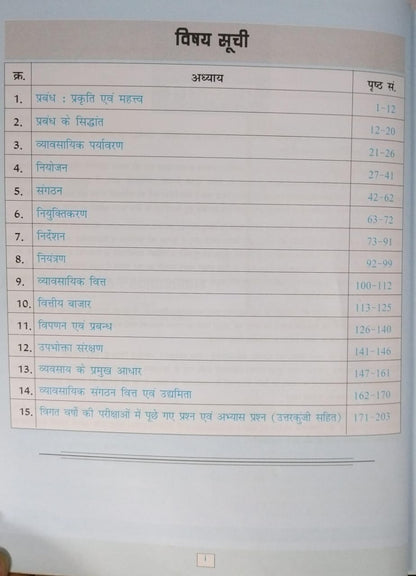 विषय सूची
क्र. अध्याय पृष्ठ सं.
1. प्रबंध : प्रकृति एवं महत्त्व 1-12
2. प्रबंध के सिद्धांत 12-20
3. व्यावसायिक पर्यावरण 21-26
4. नियोजन 27-41
5. संगठन 42-62
6. नियुक्तिकरण 63-72
7. निर्देशन 73-91
8. नियंत्रण 92-99
9. व्यावसायिक वित्त 100-112
10. वित्तीय बाजार 113-125
11. विपणन एवं प्रबन्ध 126-140
12. उपभोक्ता संरक्षण 141-146
13. व्यवसाय के प्रमुख आधार 147-161
14. व्यावसायिक संगठन वित्त एवं उद्यमिता 162-170
15. विगत वर्षों की परीक्षाओं में पूछे गए प्रश्न एवं अभ्यास प्रश्न (उत्तरकुंजी सहित) 171-203
i